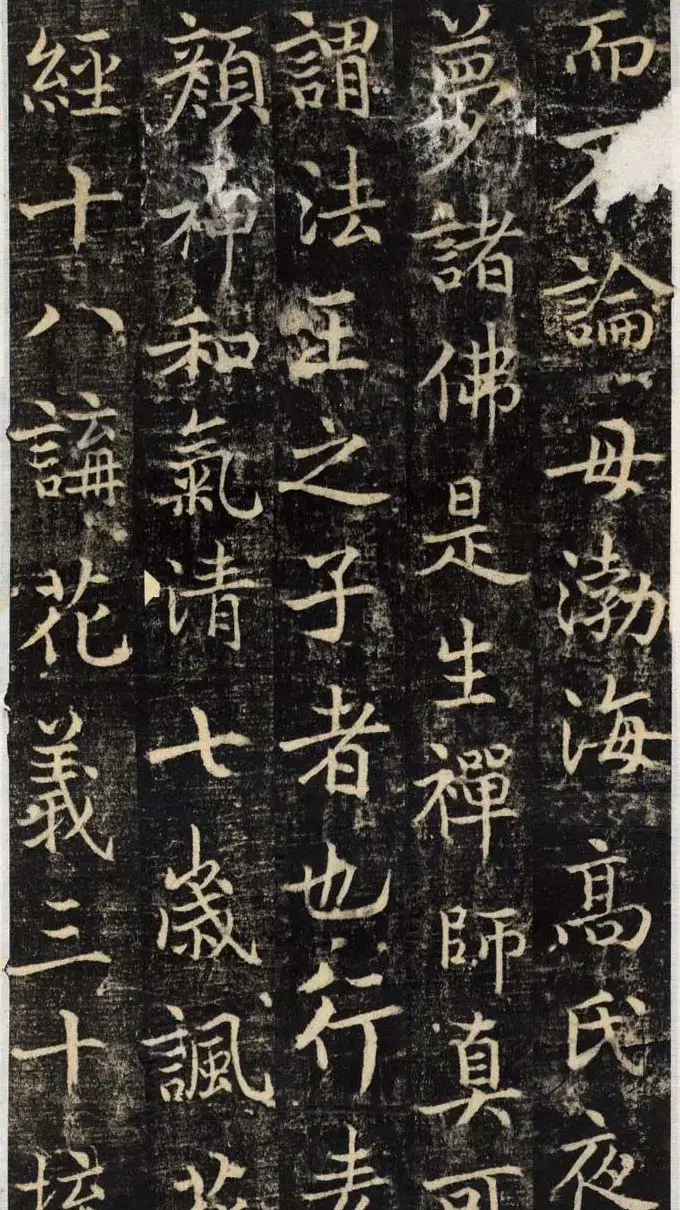 而不論母渤海高氏夜
夢諸佛是生禪師真可
謂法王之子者也行
顏神和氣清七歲諷花
經十八講花義三十